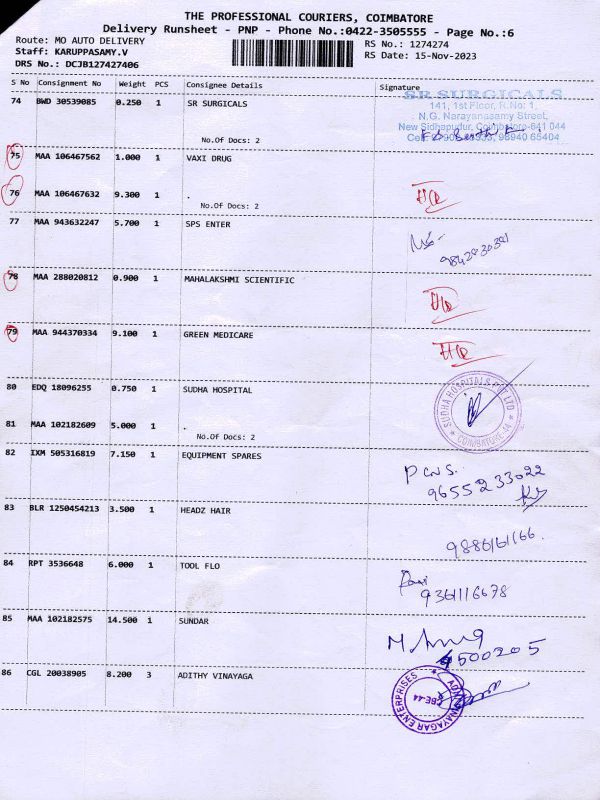 THE PROFESSIONAL COURIERS, COIMBATORE
Delivery Runsheet - PNP - Phone No.:0422-3505555 - Page No.:6
Route: MO AUTO DELIVERY
RS No.: 1274274
Staff: KARUPPASAMY.V
RS Date: 15-Nov-2023
DRS No.: DCJB127427406
S No Consignment No Weight PCS Consignee Details Signature
74 BWD 30539085 0.250 1 SR SURGICALS
SR SURGICALS
141, 1st Floor, R.No: 1,
N.G. Narayanasamy Street,
New Sidhapudur, Coimbatore-641 044
No.Of Docs: 2
98940 65404
75 MAA 106467562 1.000 1 VAXI DRUG
76 MAA 106467632 9.300 1 .
No.Of Docs: 2
77 MAA 943632247 5.700 1 SPS ENTER
78 MAA 288020812 0.900 1 MAHALAKSHMI SCIENTIFIC
79 MAA 944370334 9.100 1 GREEN MEDICARE
80 EDQ 18096255 0.750 1 SUDHA HOSPITAL
SUDHA HOSPITALS PVT LTD
COIMBATORE-44
81 MAA 102182609 5.000 1 .
No.Of Docs: 2
82 IXM 505316819 7.150 1 EQUIPMENT SPARES
9655233022
83 BLR 1250454213 3.500 1 HEADZ HAIR
9886161166.
84 RPT 3536648 6.000 1 TOOL FLO
9361116678
85 MAA 102182575 14.500 1 SUNDAR
500205
86 CGL 20038905 8.200 3 ADITHY VINAYAGA
ENTERPRISES
CBE-44